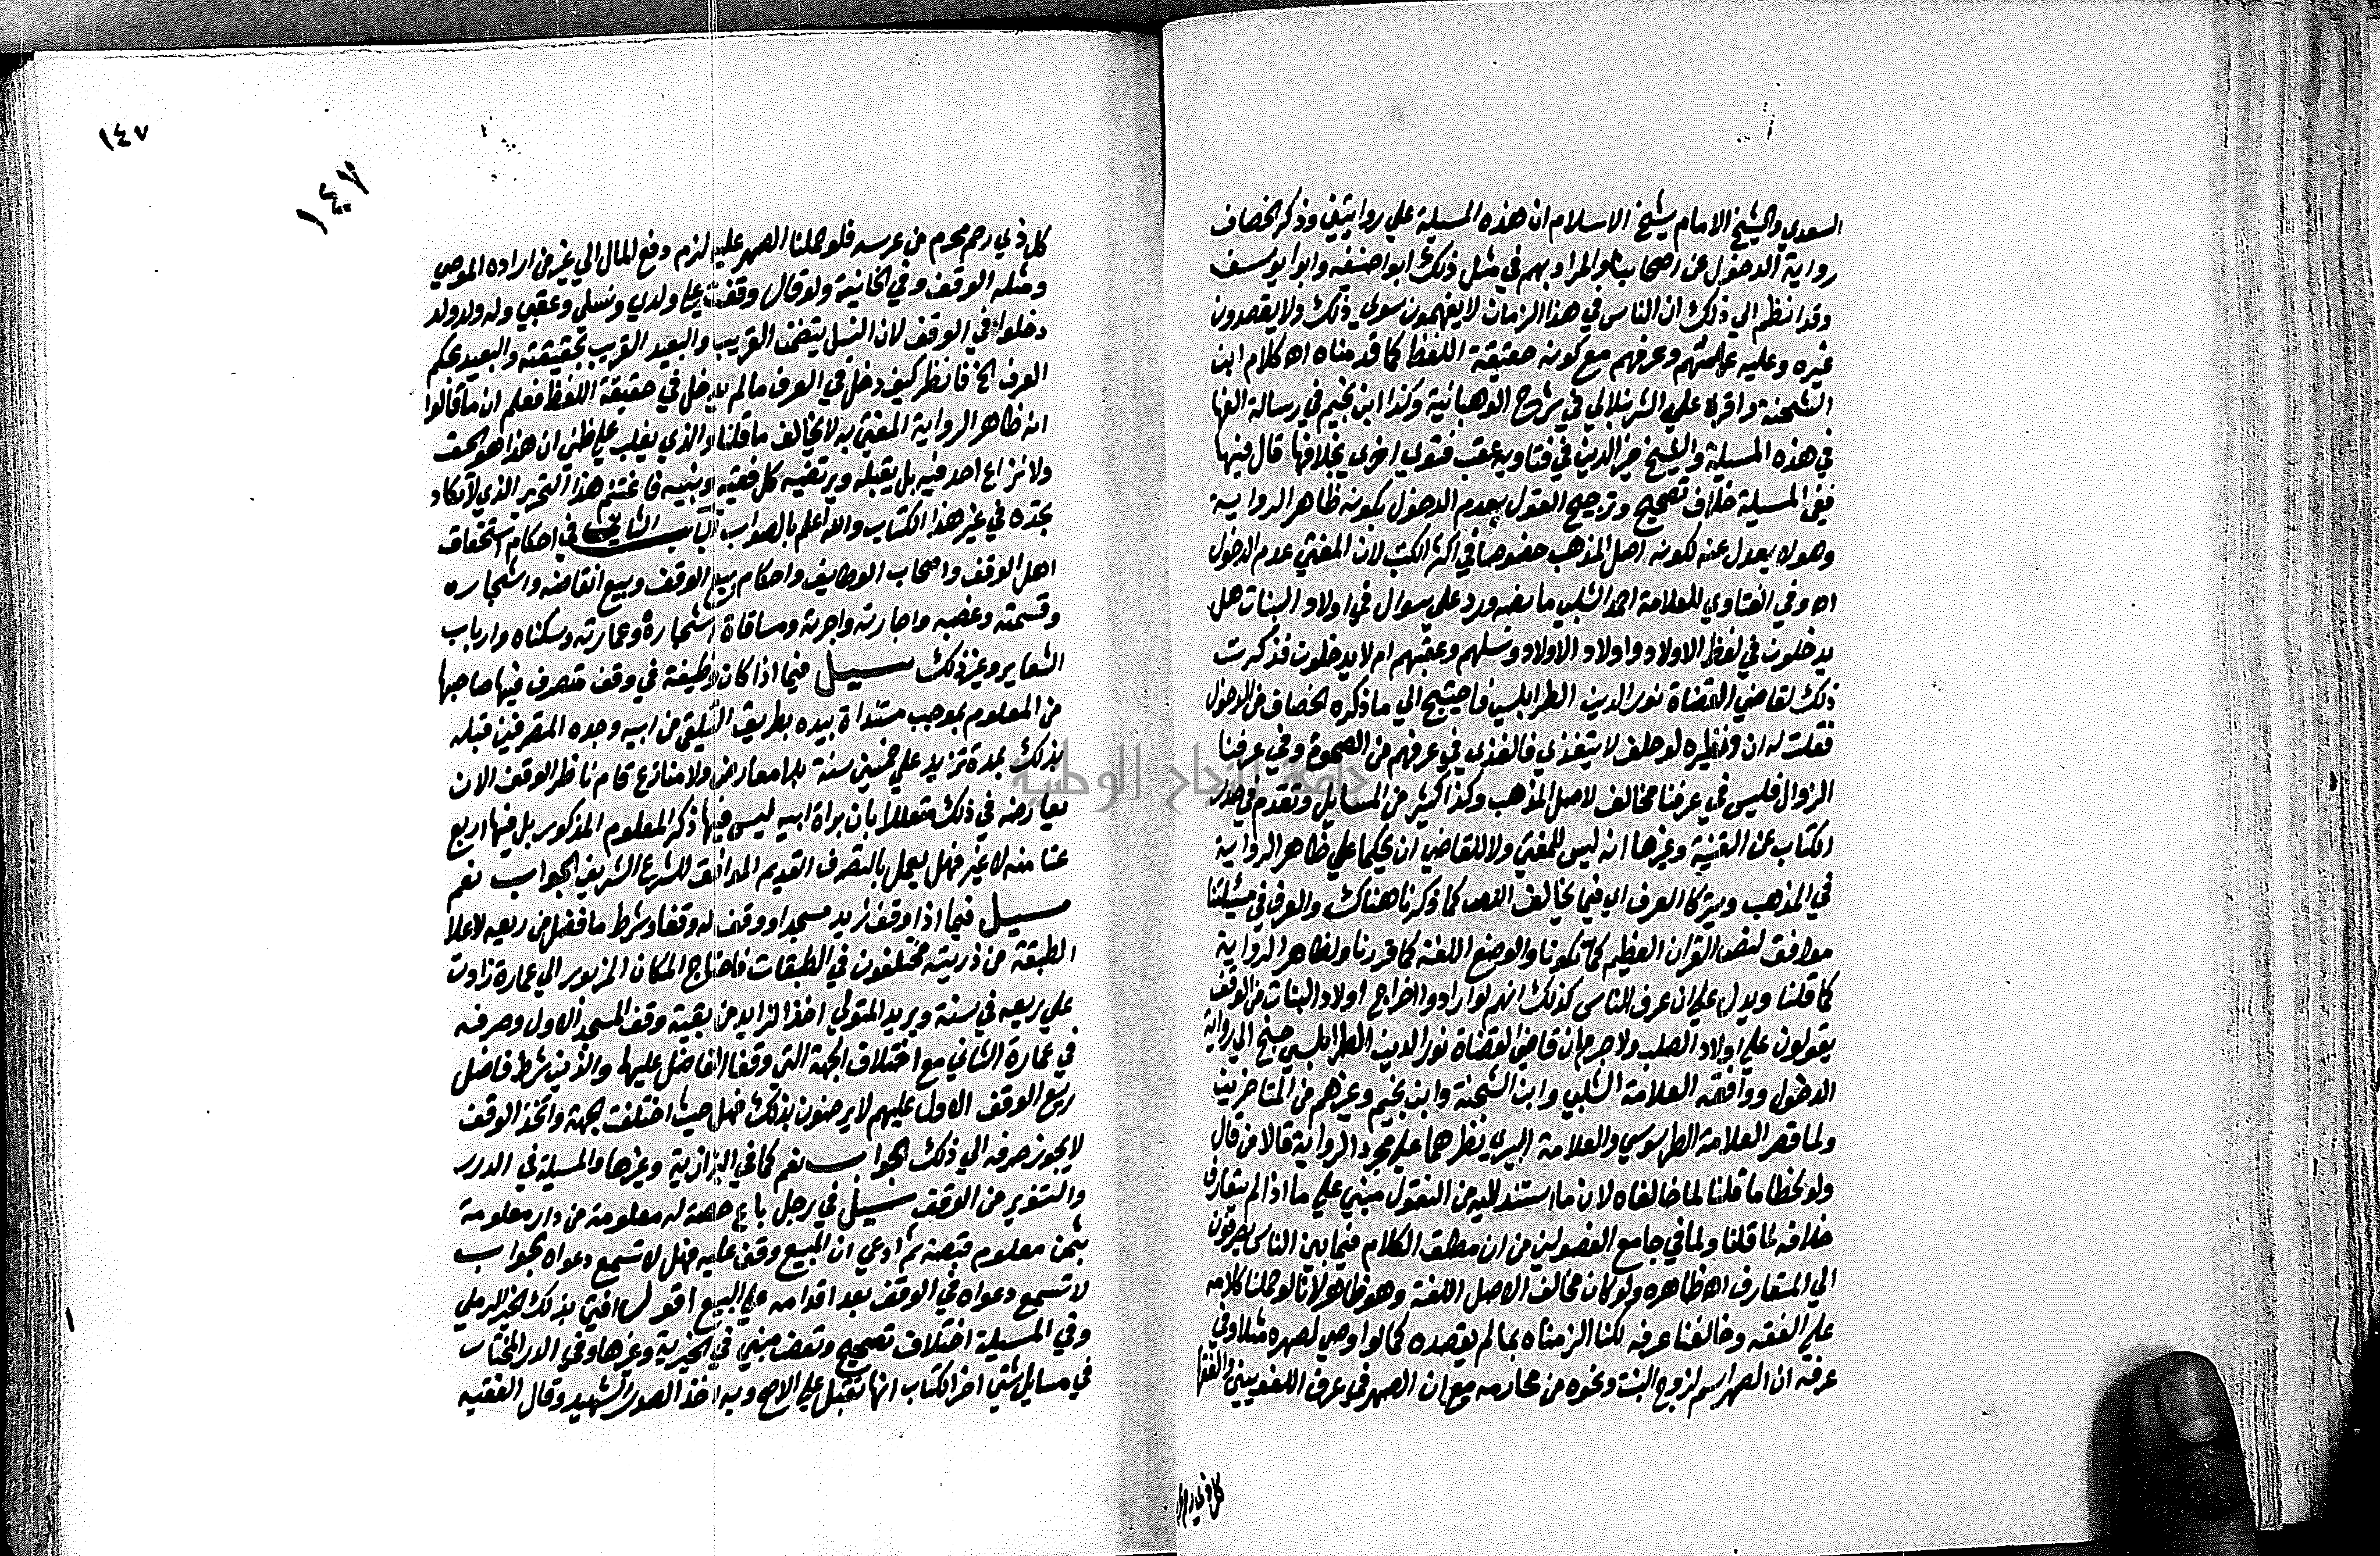 السعدي والشيخ الامام شيخ الاسلام ان هذه المسيلة علي روايتين وذكر الخصاف
رواية الدخول عن اصحابنا والمراد بهم في مثل ذلك ابوا حنيفه وابوا يوسف
وقد انظم الي ذلك ان الناس في هذا الزمان لا يفهمون سوي ذلك ولا يقصدون
غيره وعليه عملهم وعرفهم مع كونه حقيقة اللفظ كما قدمناه اه كلام ابن
الشحنة واقره عليه الشرنبلالي في شرح الوهبانية وكذا ابن نجيم في رسالة الفها
في هذه المسيلة والشيخ خير الدين في فتاويه عقب فتوي اخري بخلافها قال فيها
ففي المسيلة خلاف تصحيح وترجيح القول بعدم الدخول بكونه ظاهر الرواية
وهو لا يعدل عنه لكونه اصل المذهب خصوصا في اكثر الكتب لان المفتي عدم الدخول
اه وفي الفتاوي للعلامة احمد الشلبي ما نصه ورد علي سوال في اولاد البنات هل
يدخلون في لفظ الاولاد واولاد الاولاد ونسلهم وعقبهم ام لا يدخلون فذكرت
ذلك لقاضي القضاة نور الدين الطرابلسي فاجنح الي ما ذكره الخصاف من الدخول
فقلت له ان ونظيره لو حلف لا يتغذي فالغذي في عرفهم من الصحوة وفي عرفنا
الزوال فليس في عرفنا مخالف لاصل المذهب وكذا كثير من المسايل وتقدم في صدر
الكتاب عن القنية وغيرها انه ليس للمفتي ولا للقاضي ان يحكما علي ظاهر الرواية
في المذهب ويتركا العرف اي فيما يخالف النص كما ذكرنا هناك والعرف في مسيلتنا
موافق لنص القران العظيم كما تكونا والوضع اللغة كما قررنا ولظاهر الرواية
كما قلنا ويدل علي ان عرف الناس كذلك انهم لو ارادوا اخراج اولاد البنات من الوقف
يقولون علي اولاد الصلب ولا جرم ان قاضي القضاة نور الدين الطرابلسي جنح الي رواية
الدخول ووافقه العلامة الشلبي وابن الشحنة وابن نجيم وغيرهم من المتاخرين
ولما قصر العلامة الطرسوسي والعلامة البيري نظرهما علي مجرد الرواية قالا من قال
ولو لحظا ما قلنا لما خالفاه لان ما استند اليه من النقول مبني علي ما اذا لم يتعارف
خلافه لما قلنا ولما في جامع الفصولين من ان مطلق الكلام فيما بين الناس يصرفون
الي المتعارف اه ظاهره ولو كان مخالف الاصل اللغة وهو ظاهر لانا لو حملنا كلامه
علي الفقه وخالفنا عرفه لكنا الزمناه بما لم يقصده كما لو اوصي لصهره مثلا وفي
عرفه ان الصهر اسم لزوج البنت ونحوه من محارمه مع ان الصهر في عرف اللغويين والفقها
كل ذي رحم
١٤٧
١٤٧
كل ذي رحم محرم من عرسه فلو حملنا الصهر عليه لزم دفع المال الي غير من اراده الموصي
ومثله الوقف وفي الخانية ولو قال وقفت علي ولدي ونسلي وعقبي وله ولد ولد
دخلوا في الوقف لان النسل يتضمن القريب والبعيد القريب بحقيقته والبعيد بحكم
العرف الخ فانظر كيف دخل في العرف ما لم يدخل في حقيقة اللفظ فعلم ان ما قالوا
انه ظاهر الرواية المفتي به لا يخالف ما قلنا والذي يغلب علي ظني ان هذا هو الحق
ولا نزاع احد فيه بل يقبله ويرتضيه كل فقيه ونبيه فاغتنم هذا التحرير الذي لا تكاد
تجده في غير هذا الكتاب والله اعلم بالصواب الباب الثاني في احكام استحقاق
اهل الوقف واصحاب الوظايف واحكام بيع الوقف وبيع انقاضه واشجاره
وقسمته وغصبه واجارته واجرته ومساقاة اشجاره وعمارته وسكناه وارباب
الشعاير وغير ذلك سيل فيما اذا كان وظيفة في وقف متصرف فيها صاحبها
من المعلوم بموجب مستنداة بيده بطريق التلقي من ابيه وجده المتصرفين قبله
بذلك بمدة تزيد علي خمسين سنة بلا معارض ولا منازع قام ناظر الوقف الان
يعارضه في ذلك متعللا بان براة ابيه ليس فيها ذكر المعلوم المذكور بل فيها اربع
عثامنه لا غير فهل يعمل بالتصرف القديم الموافق للشرع الشريف الجواب نعم
سيل فيما اذا وقف زيد مسجدا ووقف له وقفا وشرط ما فضل من ريعه لاعلا
الطبقة من ذريته مختلفون في الطبقات فاحتاج المكان المزبور الي عمارة زادت
علي ريعه في سنة ويريد المتولي اخذ الزايد من بقية وقف المسجد الاول وصرفه
في عمارة الثاني مع اختلاف الجهة التي وقفا الفاضل عليها والذين شرط فاضل
ريع الوقف الاول عليهم لا يرضون بذلك فهل حيث اختلفت الجهة واتخذ الوقف
لا يجوز صرفه الي ذلك الجواب نعم كما في البزازية وغيرها والمسيلة في الدرر
والتنوير من الوقف سيل في رجل باع حصة له معلومة من دار معلومة
بثمن معلوم قبضه ثم ادعي ان المبيع وقف عليه فهل لا تسمع دعواه الجواب
لا تسمع دعواه في الوقف بعد اقدامه علي البيع اقول افتي بذلك الخير الرملي
وفي المسيلة اختلاف تصحيح وتفصيل مبني في الخيرية وغيرها وفي الدر المختار
في مسايل شتي اخر الكتاب انها تقبل علي الاصح وبه اخذ الصدر الشهيد وقال الفقيه
جامعة النجاح الوطنية